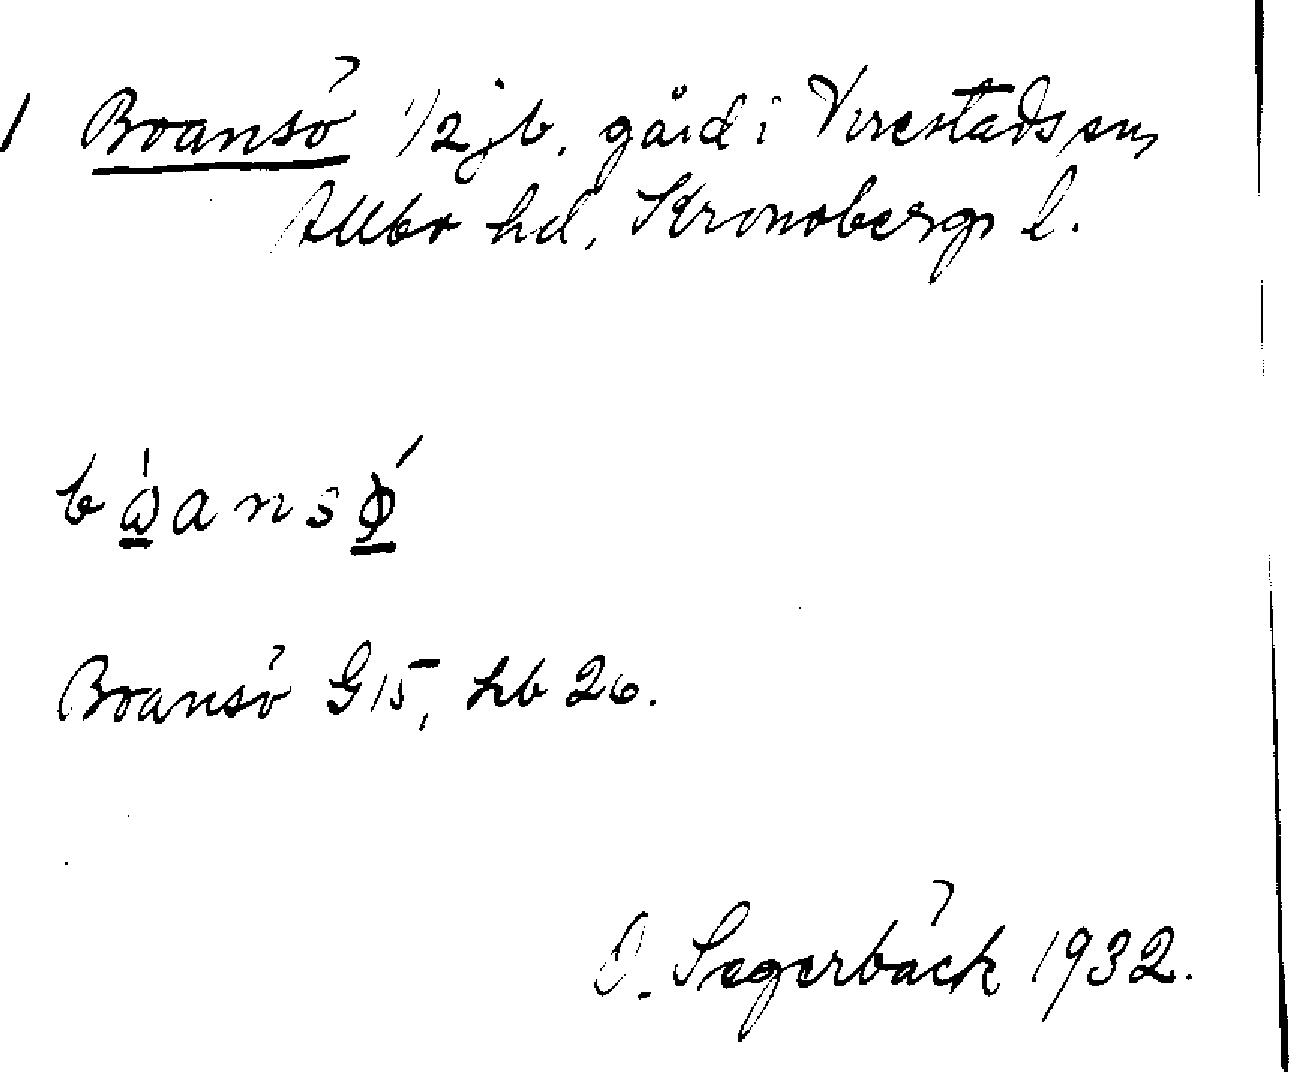 1 Boansö 1/2 jb. gård i Virestads sn,
Allbo hd, Kronobergs l.
bώ̲ansφ̲́
Boansö G15, hb 26.
O. Segerbäck 1932.